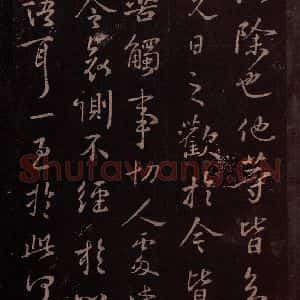 除也他等皆
日之歡於今皆
觸事切人
令哀惻不經於
語耳一至於此
Shufawang.CN